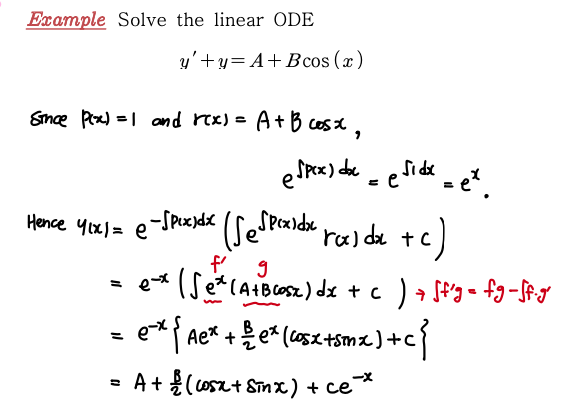 Example Solve the linear ODE
y′+y=A+Bcos(x)
Since p(x)=1 and r(x)= A+B cosx,
e^∫p(x)dx = e^∫1dx = e^x.
Hence y(x)= e^-∫p(x)dx (∫e^∫p(x)dx r(x) dx + c)
f′ g
= e^-x (∫ e^x (A+Bcosx) dx + c ) → ∫f′g = fg-∫f·g′
= e^-x { Ae^x + B/2 e^x (cosx+sinx)+c}
= A + B/2 (cosx+ sinx) + ce^-x